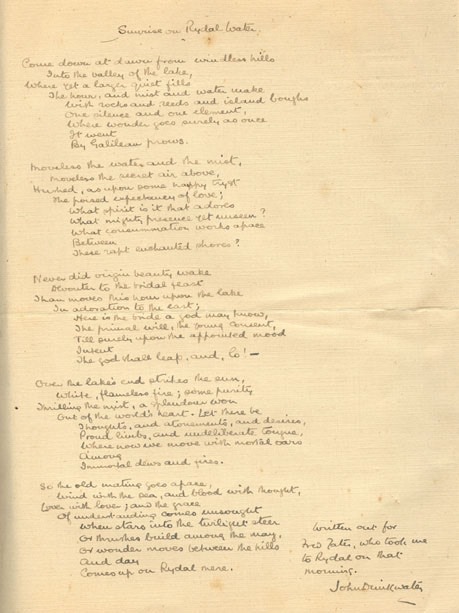 Sunrise on Rydal Water.
Come down at dawn from windless hills
Into the valley of the lake,
Where yet a larger quiet fills
The hour, and mist and water make
With rocks and reeds and island boughs
One silence and one element,
Where wonder goes surely as once
It went
By Galilean prows.
Moveless the water and the mist,
Moveless the secret air above,
Hushed, as upon some happy tryst
The poised expectancy of love;
What spirit is it that adores
What mighty presence yet unseen?
What consummation works apace
Between
These rapt enchanted shores?
Never did virgin beauty wake
Devouter to the bridal feast
Than moves this hour upon the lake
In adoration to the east;
Here is the bride a god may know,
The primal will, the young consent,
Till surely upon the appointed mood
Intent
The god shall leap, and, lo! —
Over the lake's end strikes the sun,
White, flameless fire; some purity
Thrilling the mist, a splendour won
Out of the world's heart. Let there be
Thoughts, and atonements, and desires,
Proud limbs, and undeliberate tongue,
Where now we move with mortal oars
Among
Immortal dews and fires.
So the old mating goes apace,
Wind with the sea, and blood with thought,
Lover with lover; and the grace
Of understanding comes unsought
When stars into the twilight steer
Or thrushes build among the may,
Or wonder moves between the hills
And day
Comes up on Rydal mere.
Written out for
Fred Yates, who took me
to Rydal on that
morning.
John Drinkwater